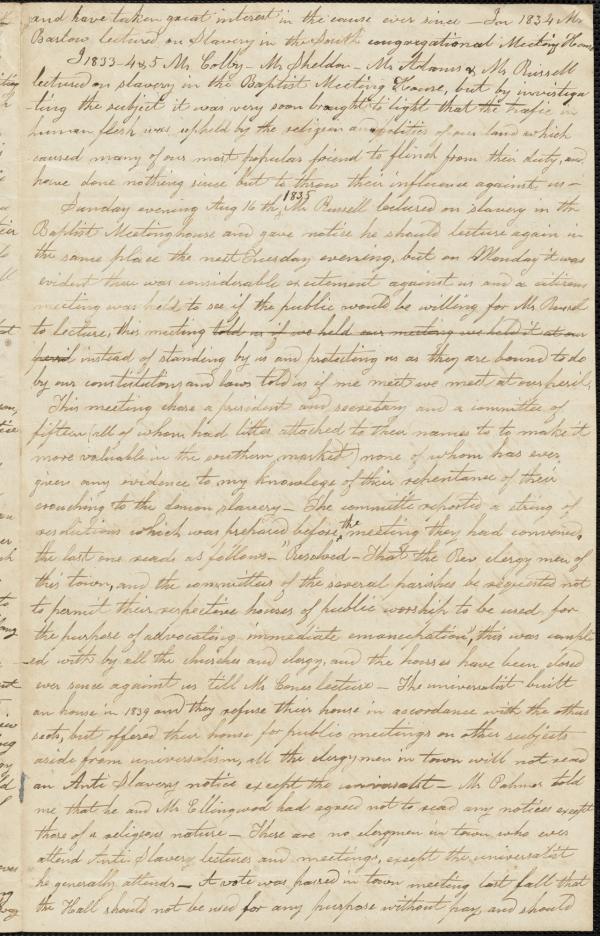 and have taken great interest in the cause ever since — In 1834 Mr
Barlow lectured on Slavery in the South congregational Meeting House
I 1833-4 & 5 Mr. Colby — Mr Sheldon — Mr Adams & Mr Russell
lectured on slavery in the Baptist Meeting House, but by investiga
-ting the subject it was very soon brought to light that the trafic in
human flesh was upheld by the religion and polities of our land which
caused many of our most popular friend to flinch from their duty, and
have done nothing since but to throw their influence against us —
Sunday evening Aug 16th, 1835 Mr Russell lectured on slavery in the
Baptist Meetinghouse and gave notice he should lecture again in
the same place the next Tuesday evening, but on Monday it was
evident there was considerable excitement against us and a citizens
meeting was held to see if the public would be willing for Mr Russel
to lecture, this meeting told us if we held our meeting we held it at our
peril instead of standing by us and protecting us as they are bound to do
by our constitution, and laws told us if we meet we meet at our peril.
This meeting chose a president and secretary and a committee of
fifteen (all of whom had titles attached to their names to to make it
more valuable in the southern market) none of whom has ever
given any evidence to my knowledge of their repentance of their
crouching to the demon slavery — The committe reported a string of
resolutions which was prepared before the meeting they had convened,
the last one reads as follows — "Resolved — That the Rev clergy men of
this town, and the committees of the several parishes be requested not
to permit their respective houses of public worship to be used for
the purpose of advocating immediate emancipation, this was compli
-ed with by all the churches and clergy, and the houses have been closed
ever since against us till Mr Cones lecture — The universalist built
an house in 1839 and they refuse their house in accordance with the other
sects, but offered their house for public meetings on other subjects
aside from universalism, all the clergymen in town will not read
an Anti Slavery notice except the universalist — Mr Palmer told
me that he and Mr Ellingwood had agreed not to read any notices except
those of a religious nature — There are no clergmen in town who ever
attend Anti Slavery lectures and meetings, except the universalist
he generally attends — A vote was passed in town meeting last fall that
the Hall should not be used for any purpose without pay, and should